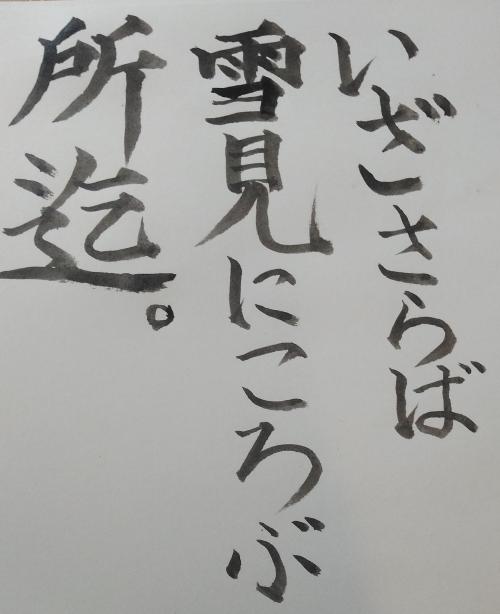 いざさらば
雪見にころぶ
所迄。